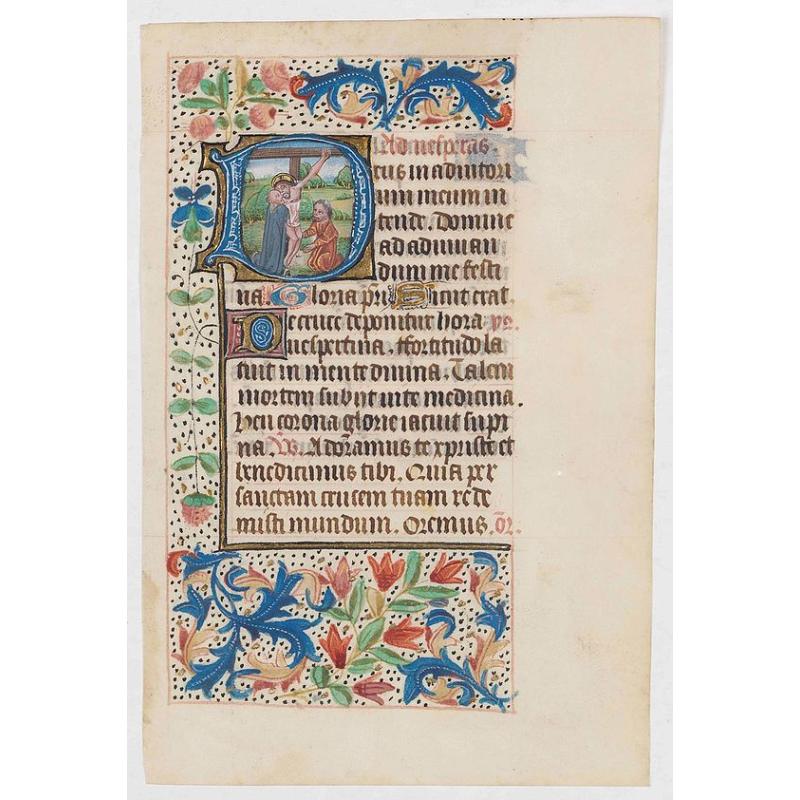 Ad vesperas.
Deus in adiutori
um meum in
tende. Domine
ad adiuuan
dum me festi
na. Gloria pri Sicut erat.
De cruce deponitur hora
vespertina. ffortitudo la
tuit in mente divina. Talem
mortem subiit vite medicina.
heu corona glorie iacuit supi
na. V. Adoramus te xpriste et
benedicimus tibi. Quia per
sanctam crucem tuam rede
misti mundum. Oremus. or.